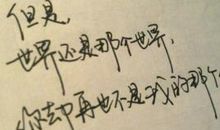 但是,
世界还是那个世界,
你却再也不是我的那个